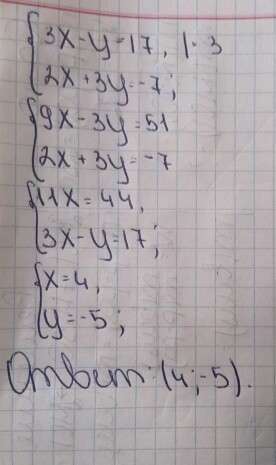 {3x-y=17, |·3
{2x+3y=-7;
{9x-3y=51
{2x+3y=-7
{11x=44,
{3x-y=17;
{x=4,
{y=-5;
Ответ: (4;-5).